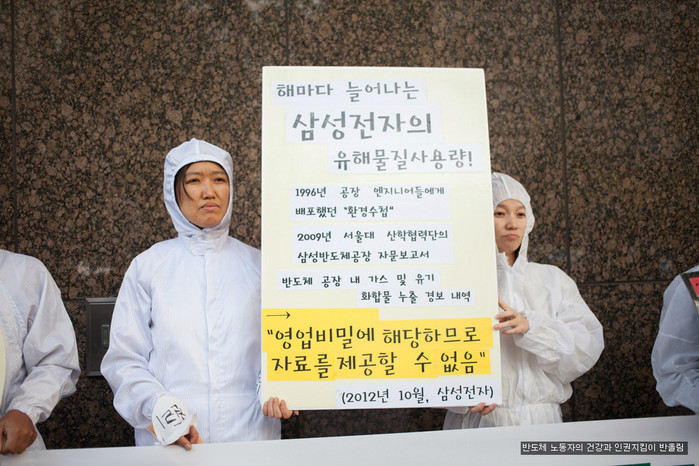 해마다 늘어나는
삼성전자의
유해물질사용량!
1996년 공장 엔지니어들에게
배포했던 "환경수첩"
2009년 서울대 산학협력단의
삼성반도체공장 자문보고서
반도체 공장 내 가스 및 유기
화합물 누출 경보 내역
→
"영업비밀에 해당하므로
자료를 제공할 수 없음"
(2012년 10월, 삼성전자)
반도체 노동자의 건강과 인권지킴이 반올림